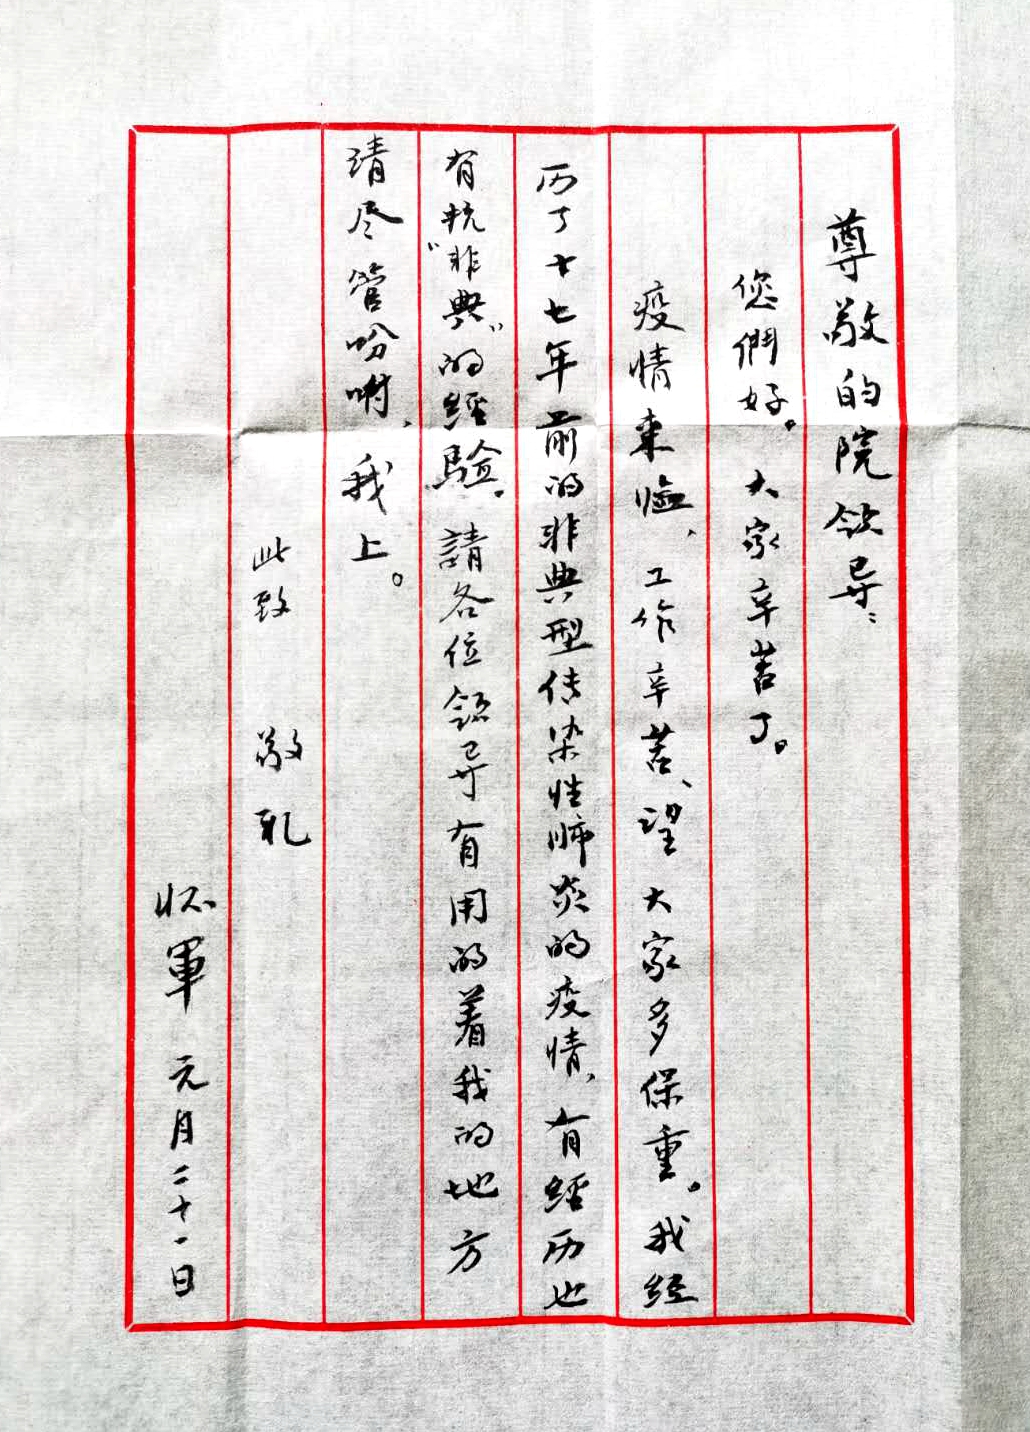 尊敬的院领导：
您們好。大家辛苦了。
疫情来临、工作辛苦、望大家多保重。我经
历了十七年前的非典型传染性肺炎的疫情、有經历也
有抗“非典”的經驗。請各位领导有用的着我的地方
请尽管吩咐、我上。
此致 敬礼
怀軍 元月二十一日